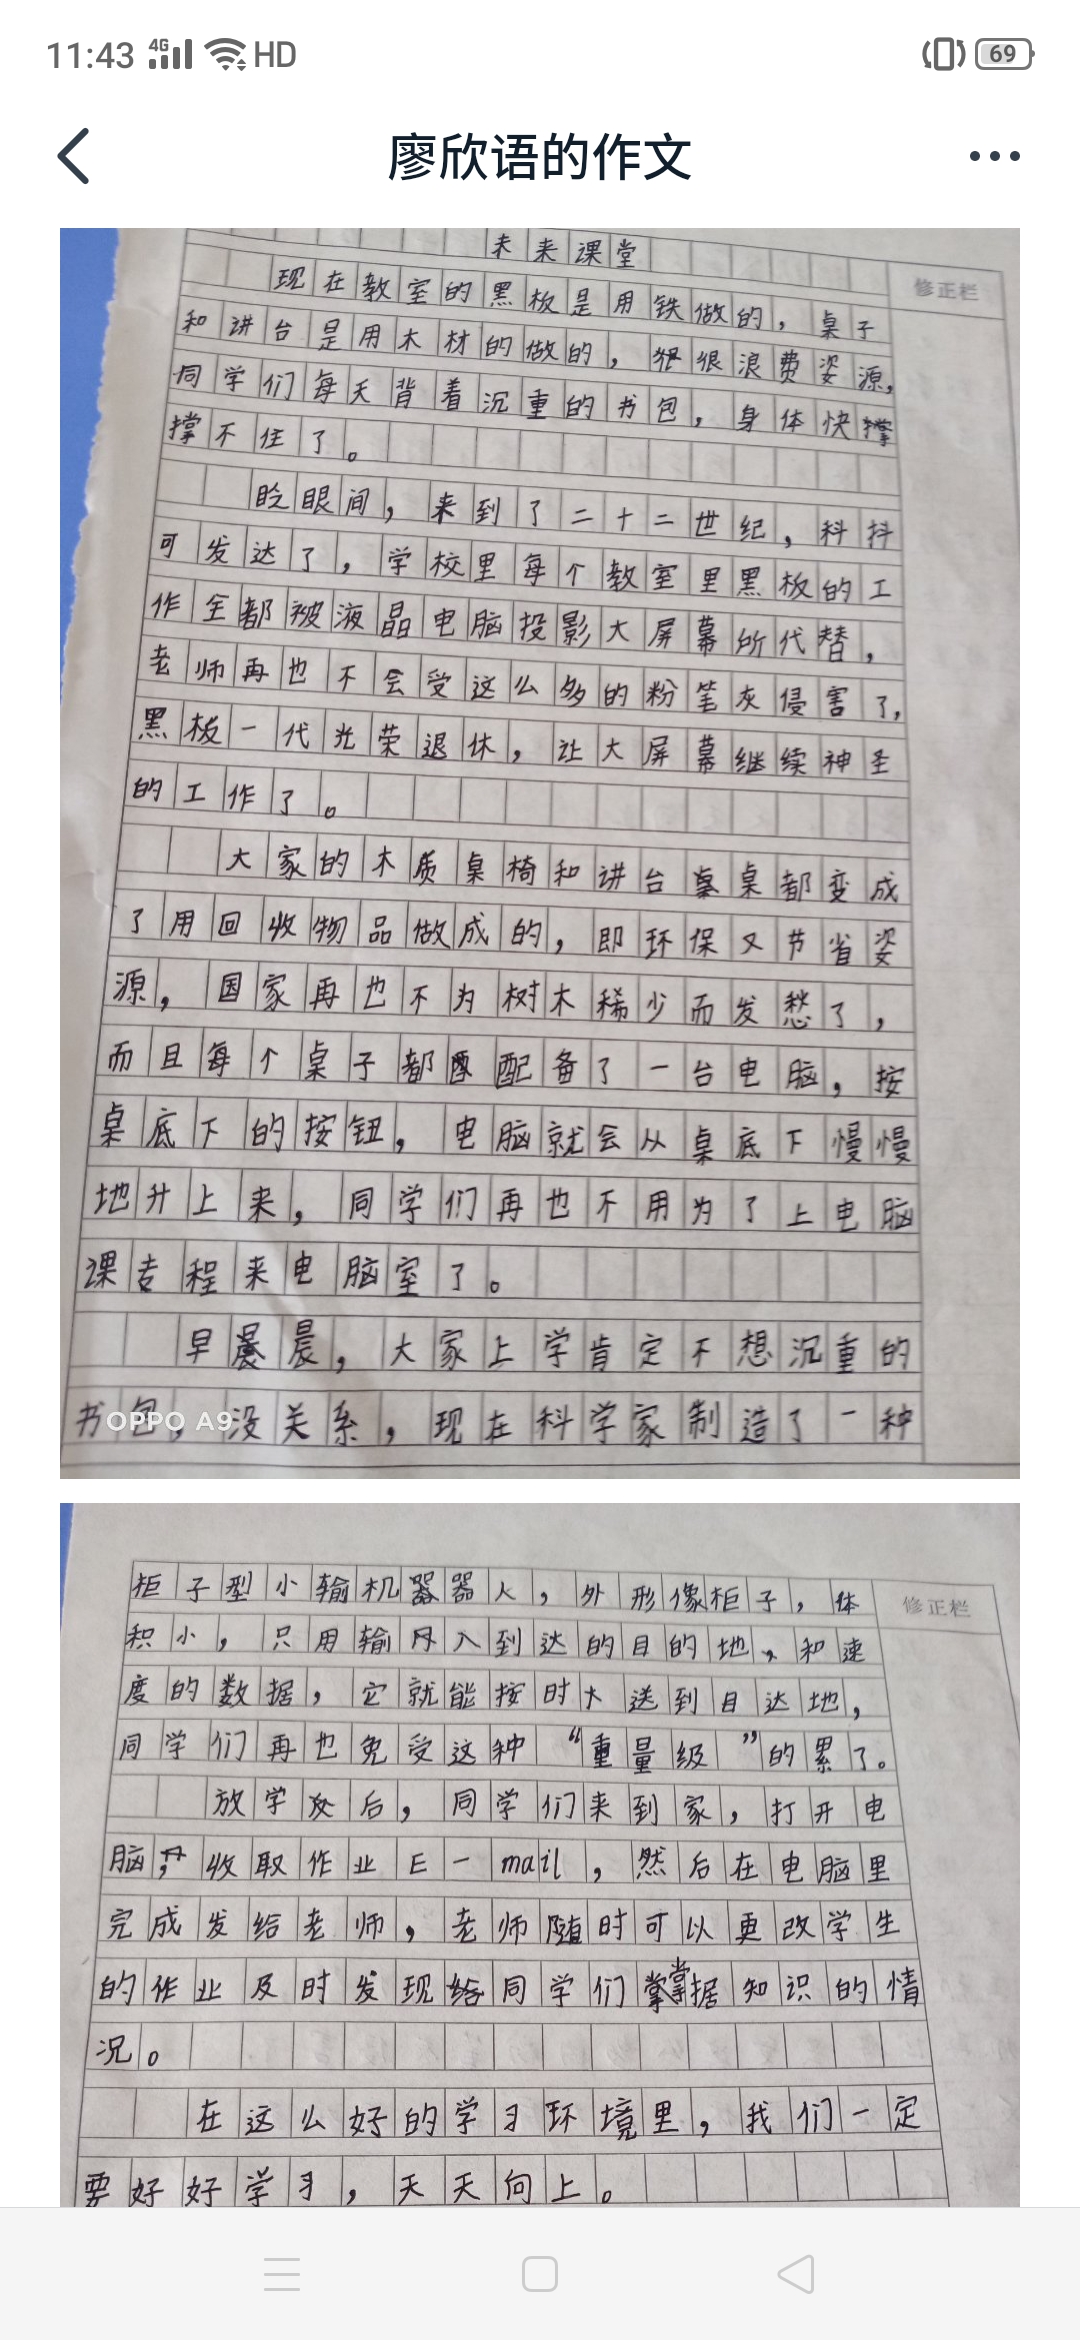 11:43 4G HD 69
廖欣语的作文
未来课堂
修正栏
现在教室的黑板是用铁做的，桌子
和讲台是用木材的做的，很很浪费姿源，
同学们每天背着沉重的书包，身体快撑
撑不住了。
眨眼间，来到了二十二世纪，科抖
可发达了，学校里每个教室里黑板的工
作全都被液晶电脑投影大屏幕所代替，
老师再也不会受这么多的粉笔灰侵害了，
黑板一代光荣退休，让大屏幕继续神圣
的工作了。
大家的木质桌椅和讲台桌桌都变成
了用回收物品做成的，即环保又节省姿
源，国家再也不为树木稀少而发愁了，
而且每个桌子都配配备了一台电脑，按
桌底下的按钮，电脑就会从桌底下慢慢
地升上来，同学们再也不用为了上电脑
课专程来电脑室了。
早晨晨，大家上学肯定不想沉重的
书包，没关系，现在科学家制造了一种
OPPO A9
修正栏
柜子型小输机器器人，外形像柜子，体
积小，只用输入到达的目的地、和速
度的数据，它就能按时大送到目达地，
同学们再也免受这种“重量级”的累了。
放学后，同学们来到家，打开电
脑，收取作业E一mail，然后在电脑里
完成发给老师，老师随时可以更改学生
的作业及时发现给同学们掌掌据知识的情
况。
在这么好的学习环境里，我们一定
要好好学习，天天向上。